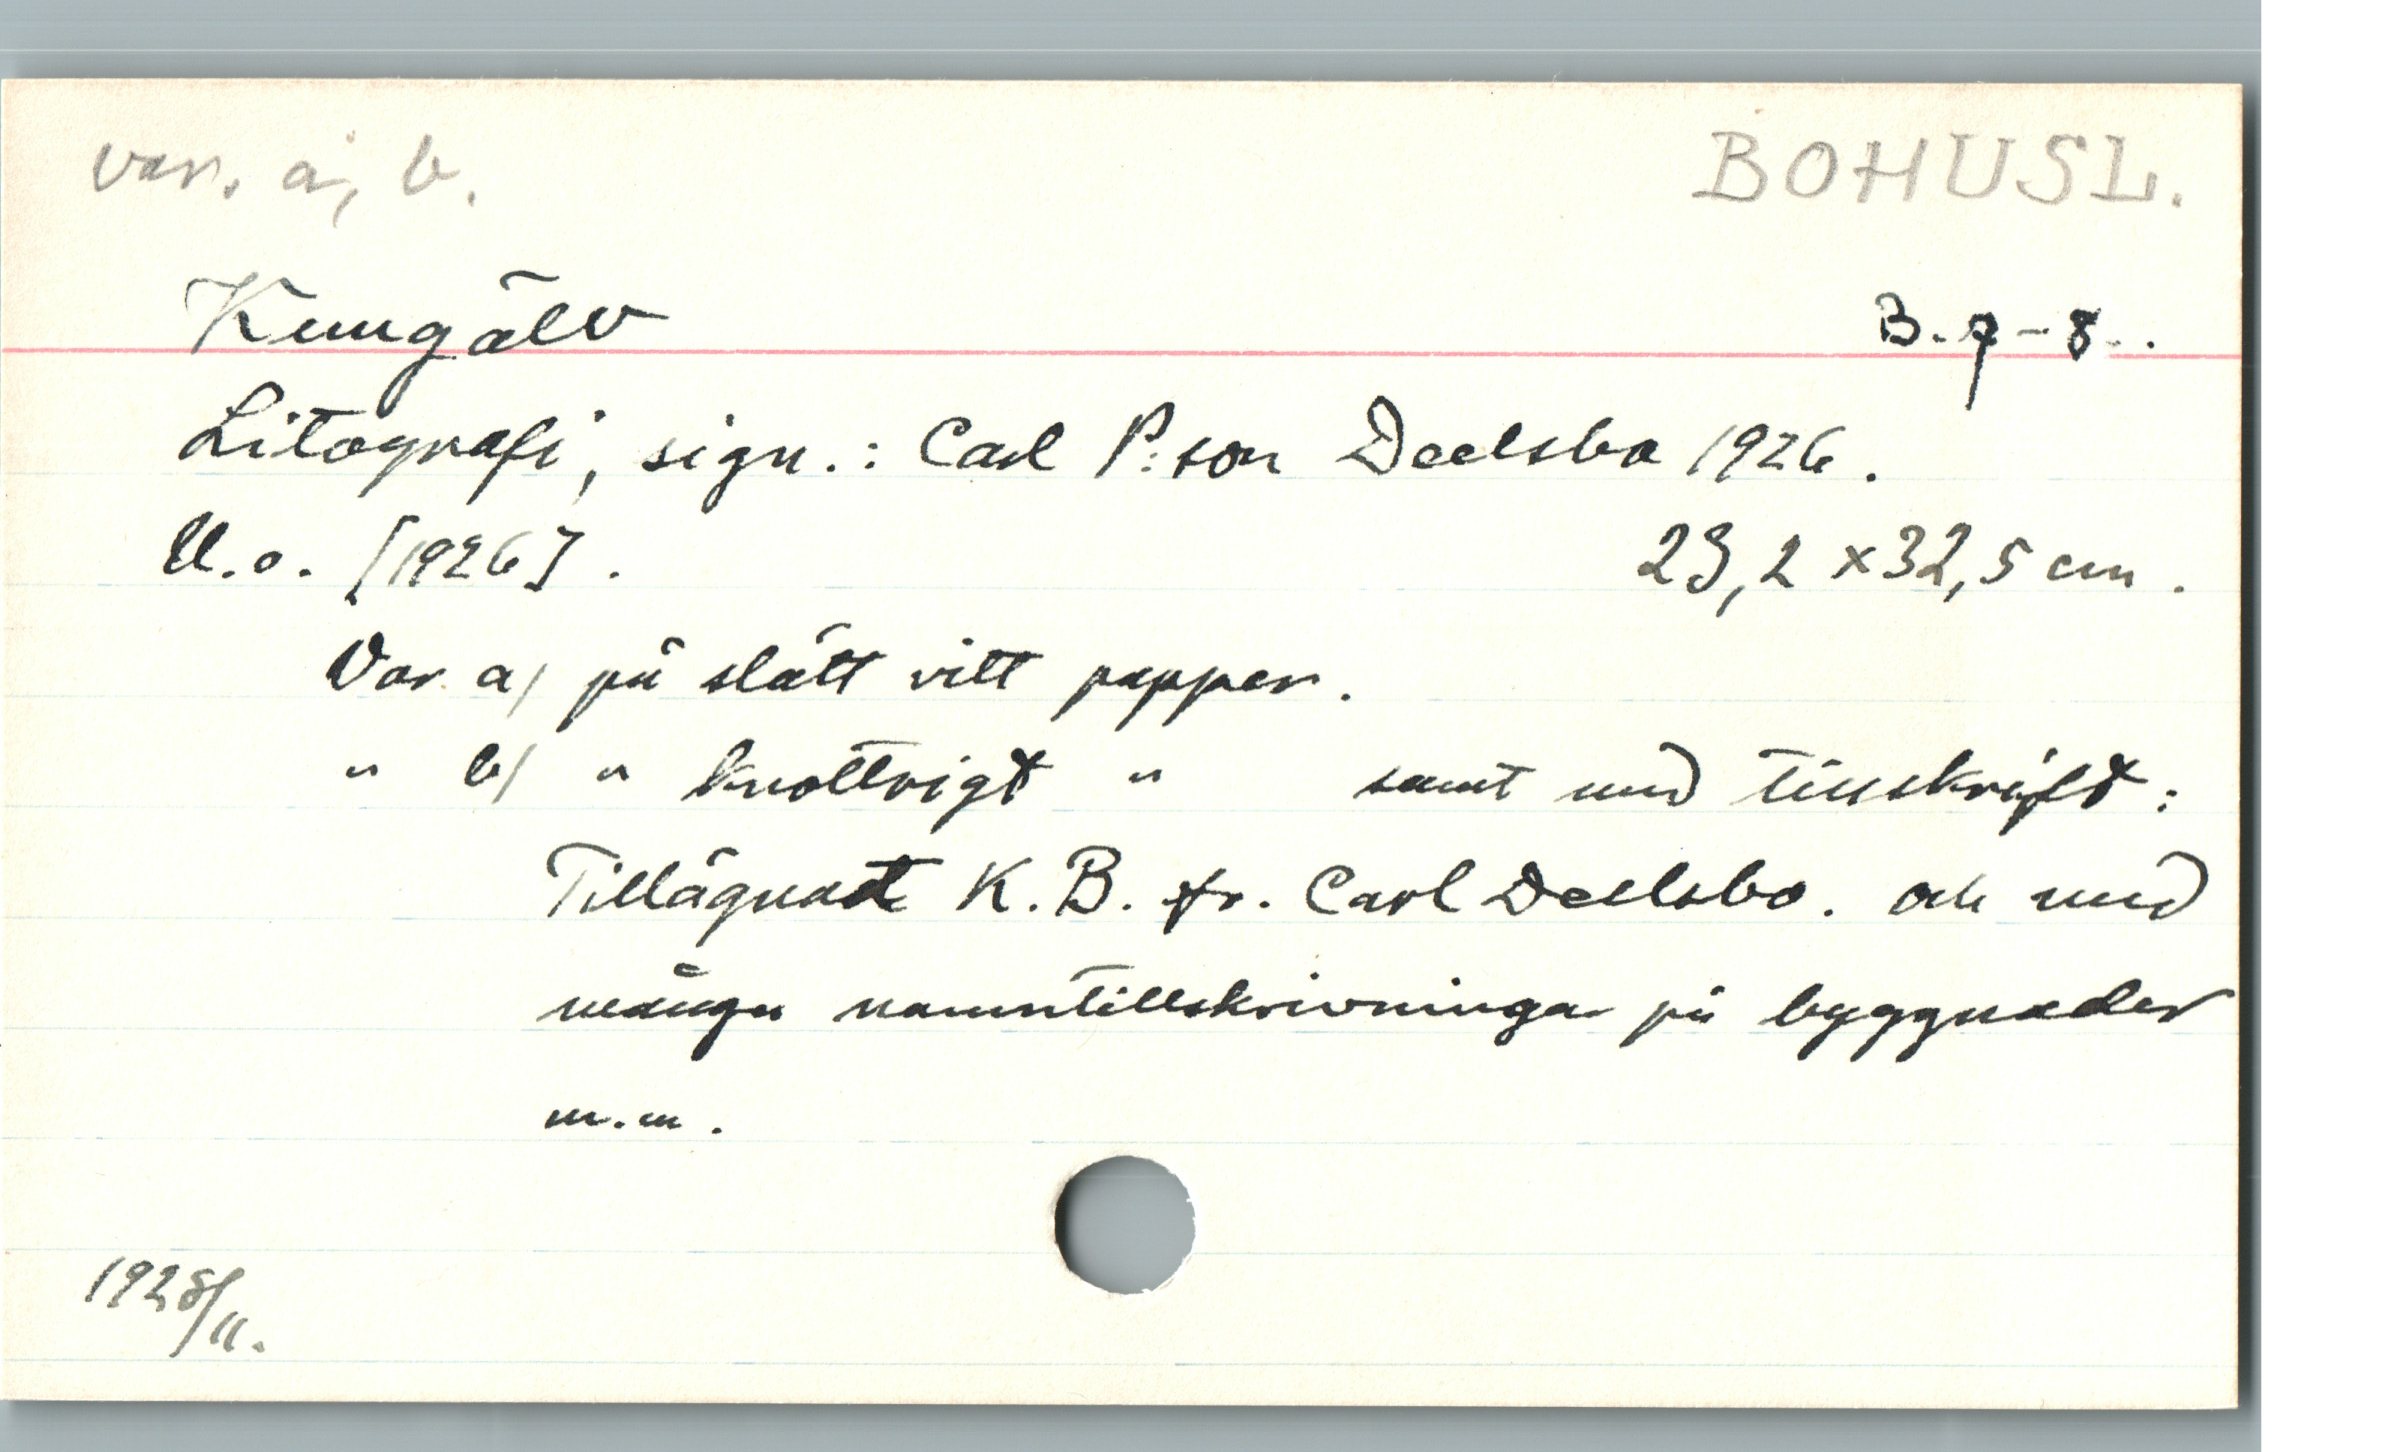 var. a, b.
BOHUSL.
Kungälv
B. 7-8..
Litografi, sign.: Carl P:son Deelsbo 1926.
U.o. [1926].
23,2 x 32,5 cm.
Var. a/ på slätt vitt papper.
" b/ " knottrigt " samt med tillskrift:
Tillägnat K.B. fr. Carl Deelsbo. och med
många namntillskrivningar på byggnader
m.m.
1928/11.